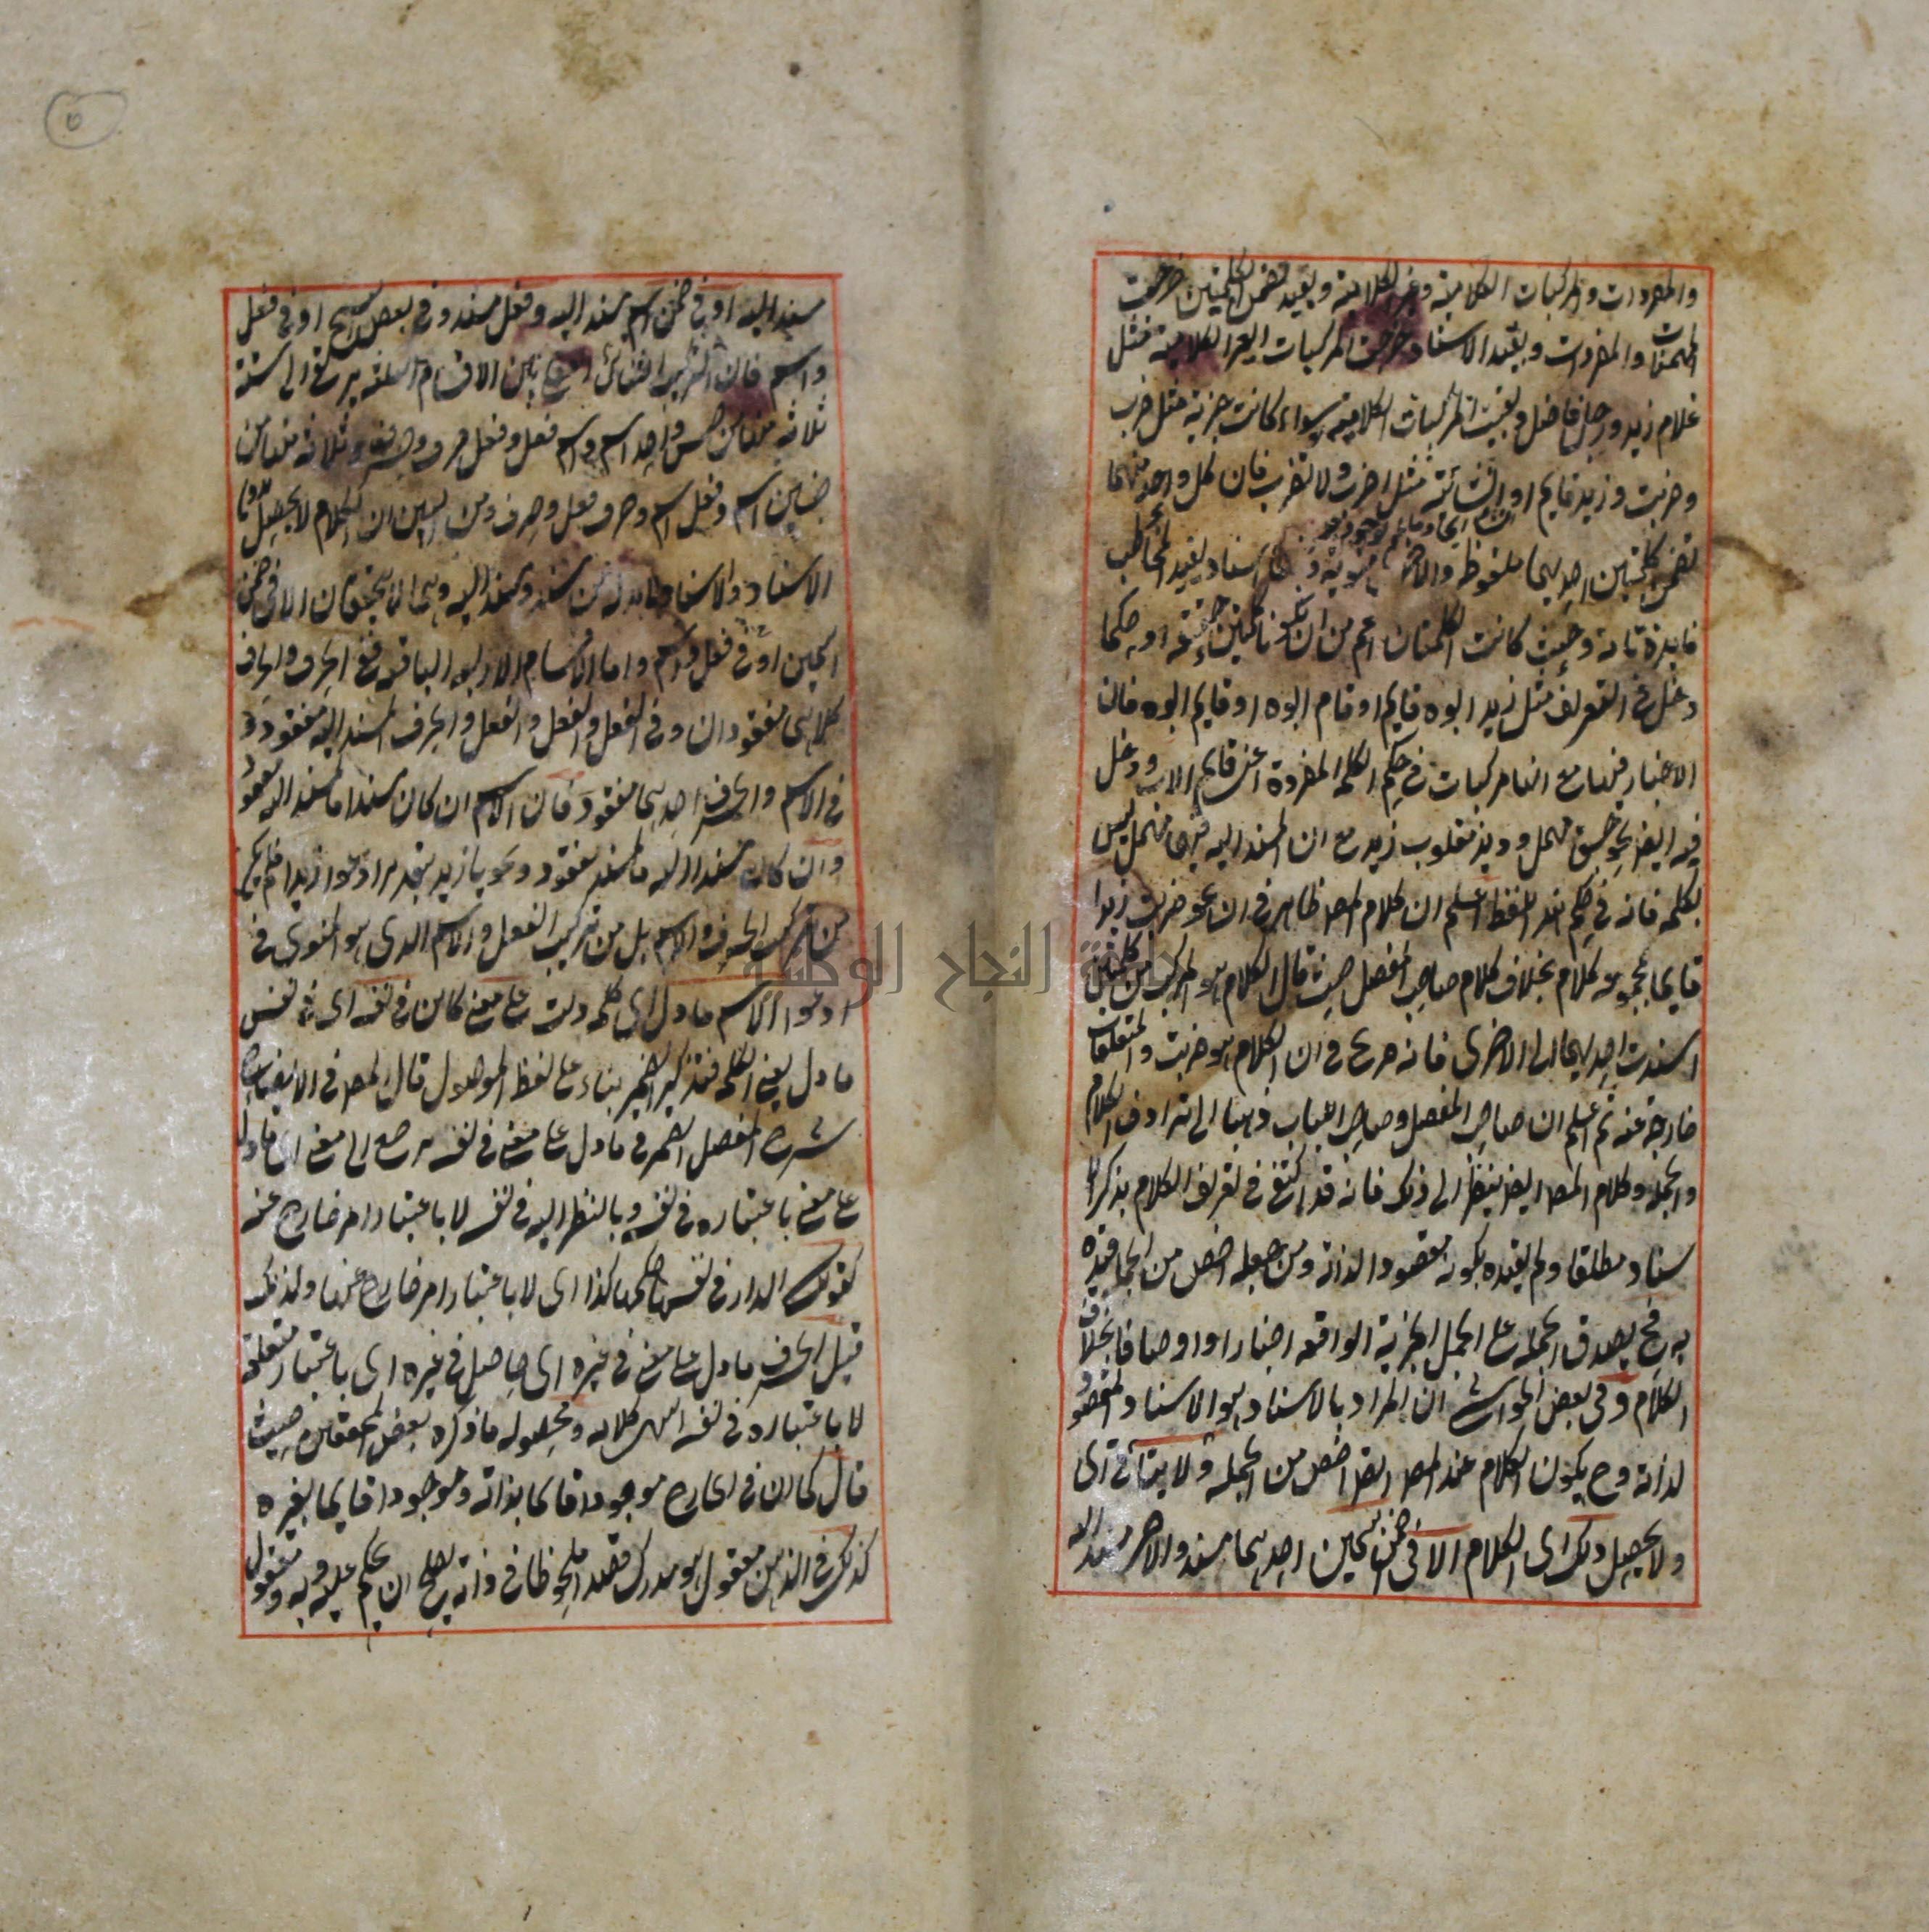 والمفردات والمركبات الكلامية وغير الكلامية وبقيد تضمن الكلمتين خرجت
المهملات والمفردات وبقيد الاسناد خرجت المركبات الغير الكلامية مثل
غلام زيد ورجل فاضل وبقيت المركبات الكلامية سواء كانت خبرية مثل ضرب
وضربت وزيد قايم او انشائية مثل اضرب ولا تضرب فان كل واحد منهما
تضمن كلمتين احديهما ملفوظة والاخرى منوية وبينهما اسناد يفيد المخاطب
فايدة تامة وحيث كانت الكلمتان اعم من ان تكونا كلمتين حقيقة او حكما
دخل في التعريف مثل زيد ابوه قايم او قام ابوه او قايم ابوه فان
الاخبار فيها مع انها مركبات في حكم الكلمة المفردة اعني قايم الاب ودخل
فيه ايضا نحو جسق مهمل وديز مقلوب زيد مع ان المسند اليه فيهما مهمل ليس
بكلمة فانه في حكم هذا اللفظ اعلم ان كلام المص ظاهر في ان نحو ضربت زيدا
قايما بمجموعه كلام بخلاف كلام صاحب المفصل حيث قال الكلام هو المركب من كلمتين
اسندت احديهما الى الاخرى فانه صريح في ان الكلام هو ضربت والمتعلقات
خارجة عنه ثم اعلم ان صاحب المفصل وصاحب اللباب ذهبا الى ترادف الكلام
والجملة وكلام المص ايضا ينظر الى ذلك فانه قد اكتفى في تعريف الكلام بذكر الا
سناد مطلقا ولم يقيده بكونه مقصودا لذاته ومن جعله اخص من الجملة قيده
به فح يصدق الجملة على الجمل الخبرية الواقعة اخبارا او اوصافا بخلاف
الكلام وفي بعض الحواشي ان المراد بالاسناد هو الاسناد المقصود
لذاته وح يكون الكلام عند المص ايضا اخص من الجملة ولا يتاتى اى
ولا يحصل ذلك اى الكلام الا في ضمن اسمين احديهما مسند والاخر مسند اليه
مسند اليه او في ضمن اسم مسند اليه وفعل مسند وفي بعض النسخ او في فعل
واسم فان التركيب الثنائي العقلي بين الاقسام الثلثة يرتقى الى ستة
ثلاثة منها من جنس واحد اسم واسم فعل وفعل حرف وحرف وثلاثة منها من
جنسين اسم وفعل اسم وحرف فعل وحرف ومن البين ان الكلام لا يحصل بدون
الاسناد والاسناد لا بد له من مسند ومسند اليه وهما لا يتحققان الا في ضمن
اسمين او في فعل واسم واما الاقسام الاربعة الباقية ففي الحرف والحرف
كلاهما مفقودان وفي الفعل والفعل والفعل والحرف المسند اليه مفقود و
في الاسم والحرف احدهما مفقود فان الاسم ان كان مسندا فالمسند اليه مفقود
وان كان مسندا اليه فالمسند مفقود ونحو يا زيد بتقدير ادعوا زيدا فلم يكن
من تركيب الحرف والاسم بل من تركيب الفعل والاسم الذى هو المنوى في
ادعوا الاسم ما دل اى كلمة دلت على معنى كاين في نفسه اى في نفس
ما دل يعنى الكلمة فتذكير الضمير بناء على لفظ الموصول قال المص في الايضاح
شرح المفصل الضمير في ما دل على معنى في نفسه يرجع الى معنى اى ما دل
على معنى باعتباره في نفسه وبالنظر اليه في نفسه لا باعتبار امر خارج عنه
كقولك الدار في نفسها حكمها كذا اى لا باعتبار امر خارج عنها ولذلك
قيل الحرف ما دل على معنى في غيره اى حاصل في غيره اى باعتبار متعلقه
لا باعتباره في نفسه انتهى كلامه ومحصوله ما ذكره بعض المحققين حيث
قال كما ان في الخارج موجودا قايما بذاته وموجودا قايما بغيره
كذلك في الذهن معقول هو مدرك قصدا ملحوظا في ذاته يصلح ان يحكم عليه وبه ومعقول